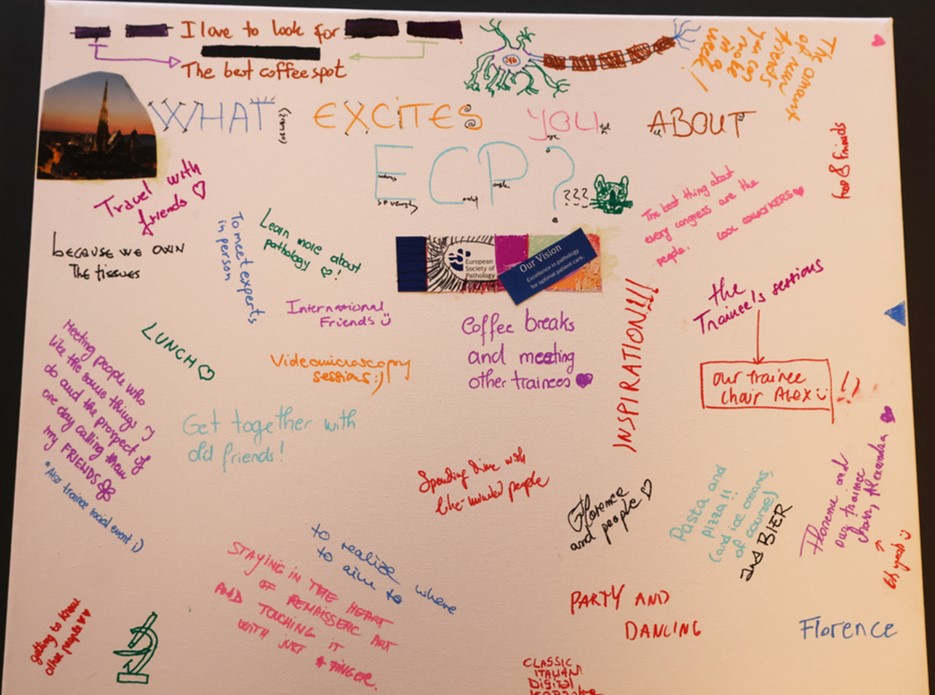 I love to look for
The best coffee spot
The amount
of new
friends
you can
make
in a
week!
WHAT EXCITES YOU ABOUT
ECP?
???
Travel with
friends
because we own
The tissues
To meet experts
in person
Learn more about
pathology !
International
Friends
European
Society of
Pathology
Our Vision
Excellence in pathology
for optimal patient care.
The best thing about
every congress are the
people. cool coworkers
food & friends
the
Trainee's sessions
our trainee
chair Alex
!!
INSPIRATION!!!
Coffee breaks
and meeting
other trainees
LUNCH
Videomicroscopy
sessions :)
Meeting people who
like the same things I
do and the prospect of
one day calling them
my FRIENDS
*Also trainee social event :)
Get together with
old friends!
Spending time with
like-minded people
Florence
and people
Pasta and
pizza!!
(and ice creams,
of course)
and BIER
Florence and
our trainee
chair, Alexandra
Oh yeah
to realize where
to aim to
STAYING IN THE HEART
OF RENAISSENC ART
AND TOUCHING IT
WITH JUST A FINGER.
getting to know
other people
PARTY AND
DANCING
Florence
CLASSIC
ITALIAN
DIGITAL